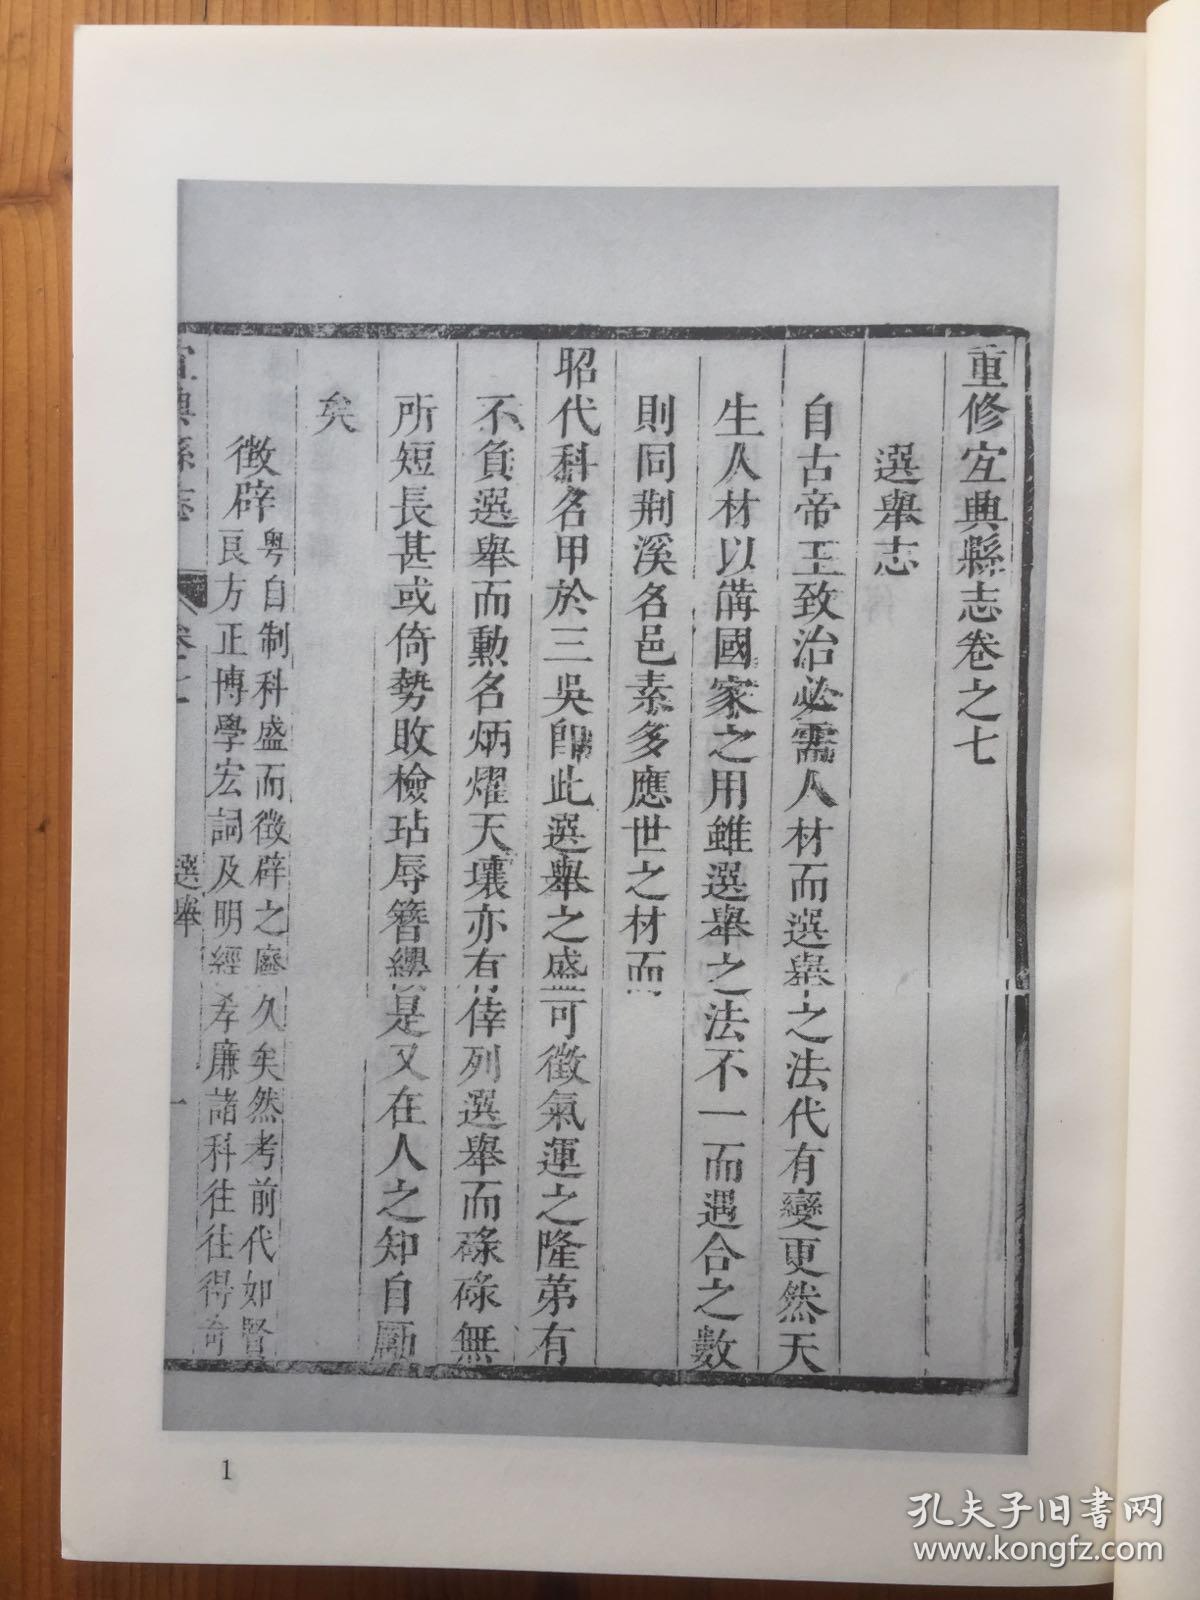 重修宜興縣志卷之七
選舉志
自古帝王致治必需人材而選舉之法代有變更然天
生人材以備國家之用雖選舉之法不一而遇合之數
則同荆溪名邑素多應世之材而
昭代科名甲於三吳即此選舉之盛可徵氣運之隆苐有
不負選舉而勲名炳燿天壤亦有倖列選舉而碌碌無
所短長甚或倚勢敗檢玷辱簪纓是又在人之知自勵
矣
徴辟
粤自制科盛而徴辟之廢久矣然考前代如賢
良方正博學宏詞及明經孝廉諸科往往得奇
宜興縣志
卷之七
選舉
一
1
孔夫子旧书网
www.kongfz.com